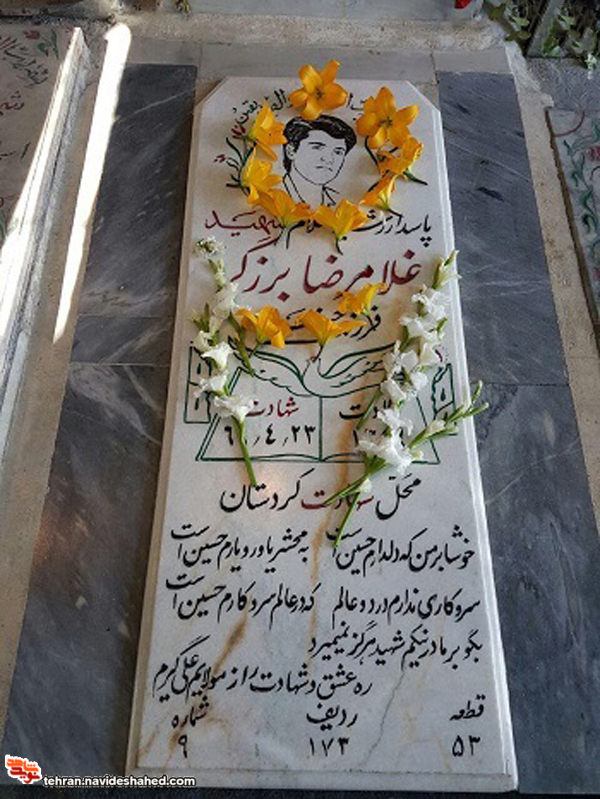 پاسدار رشید اسلام شهید
غلامرضا برزگر
فرزند
ولادت
شهادت
۶۰٫۴٫۲۳
محل شهادت کردستان
خوشا بر من که دلدارم حسین است به محشر یاور و یارم حسین است
سروکاری ندارم در دو عالم که در عالم سروکارم حسین است
بگو بر مادر نیکم شهید هرگز نمیمیرد
ره عشق و شهادت را ز مولایم علی گیرم
قطعه ردیف شماره
۵۳ ۱۷۳ ۹
نوید شاهد
tehran.navideshahed.com